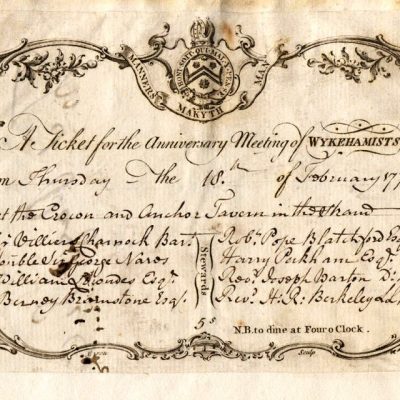 MANNERS MAKYTH MAN
HONI SOIT QUI MAL Y PENSE
A Ticket for the Anniversary Meeting of WYKEHAMISTS
on Thursday the 18th of February 177
at the Crown and Anchor Tavern in the Strand
Villiers Charnock Bart.
Sir George Nares
William Esqr.
Berney Bramstone Esqr.
Stewards
Robt. Pope Blachford Esq
Harry Peckham Esqr.
Revd. Joseph Barton D:
Revd. H: R: Berkeley
5s
N.B. to dine at Four o Clock.
Sculp